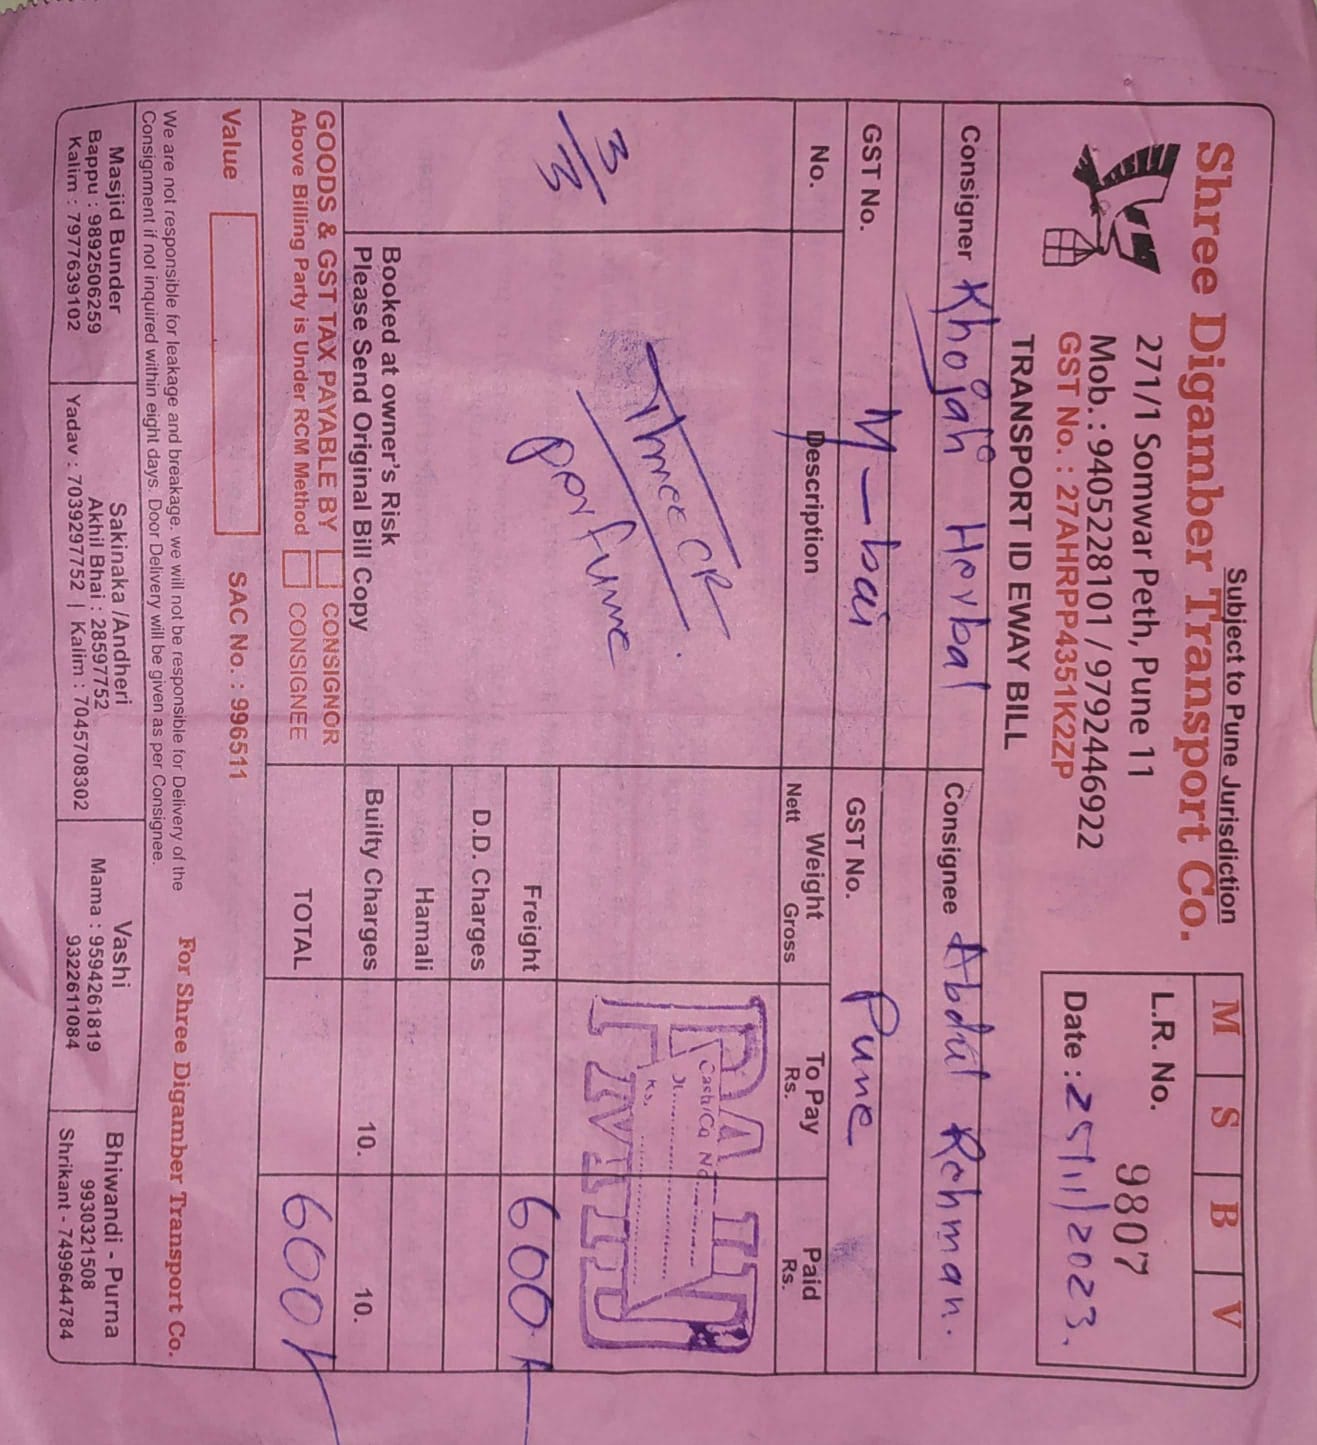 Subject to Pune Jurisdiction
Shree Digamber Transport Co.
271/1 Somwar Peth, Pune 11
Mob. : 9405228101 / 9792446922
GST No. : 27AHRPP4351K2ZP
TRANSPORT ID EWAY BILL
M S B V
L.R. No. 9807
Date : 25/11/2023.
Consigner Khojati Herbal
Consignee Abdul Rehman.
GST No. M-bai
GST No. Pune
No. Description Weight To Pay Paid
Nett Gross Rs. Rs.
3/3
Three CR
Perfume
PAID
Cash/Ca No
Rs.
Freight 600
D.D. Charges
Hamali
Builty Charges 10. 10.
TOTAL 600
Booked at owner's Risk
Please Send Original Bill Copy
GOODS & GST TAX PAYABLE BY CONSIGNOR
Above Billing Party is Under RCM Method CONSIGNEE
Value SAC No. : 996511
We are not responsible for leakage and breakage. we will not be responsible for Delivery of the
Consignment if not inquired within eight days. Door Delivery will be given as per Consignee.
For Shree Digamber Transport Co.
Masjid Bunder
Bappu : 9892506259
Kalim : 7977639102
Sakinaka /Andheri
Akhil Bhai : 28597752
Yadav : 7039297752 | Kalim : 7045708302
Vashi
Mama : 9594261819
9322611084
Bhiwandi - Purna
9930321508
Shrikant - 7499644784